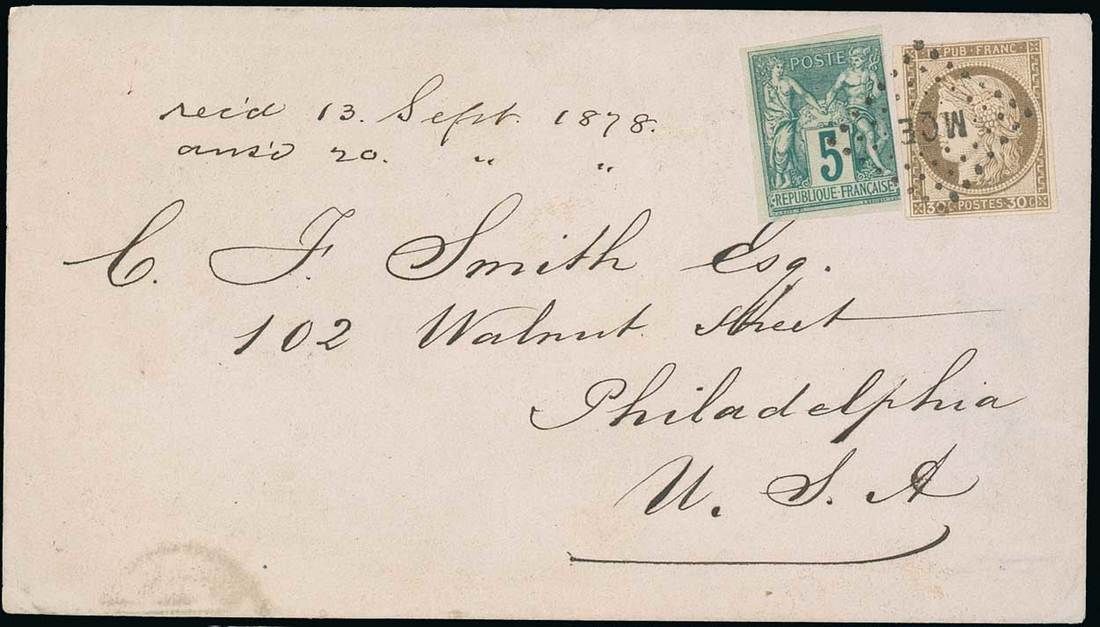 rec'd 13. Sept. 1878.
ans'd 20. " "
POSTE
5
RÉPUBLIQUE FRANÇAISE
REPUB. FRANC.
MCE
30C POSTES 30C
C. F. Smith Esq.
102 Walnut Street
Philadelphia
U. S. A